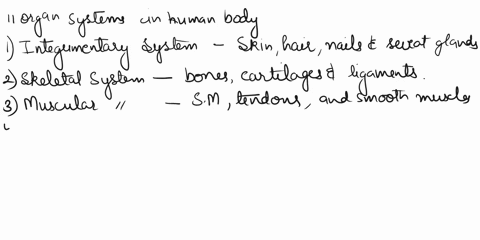 11 organ systems in human body
1) Integumentary System - Skin, hair, nails & sweat glands
2) Skeletal System - bones, cartilages & ligaments.
3) Muscular " - S.M, tendons, and smooth muscles